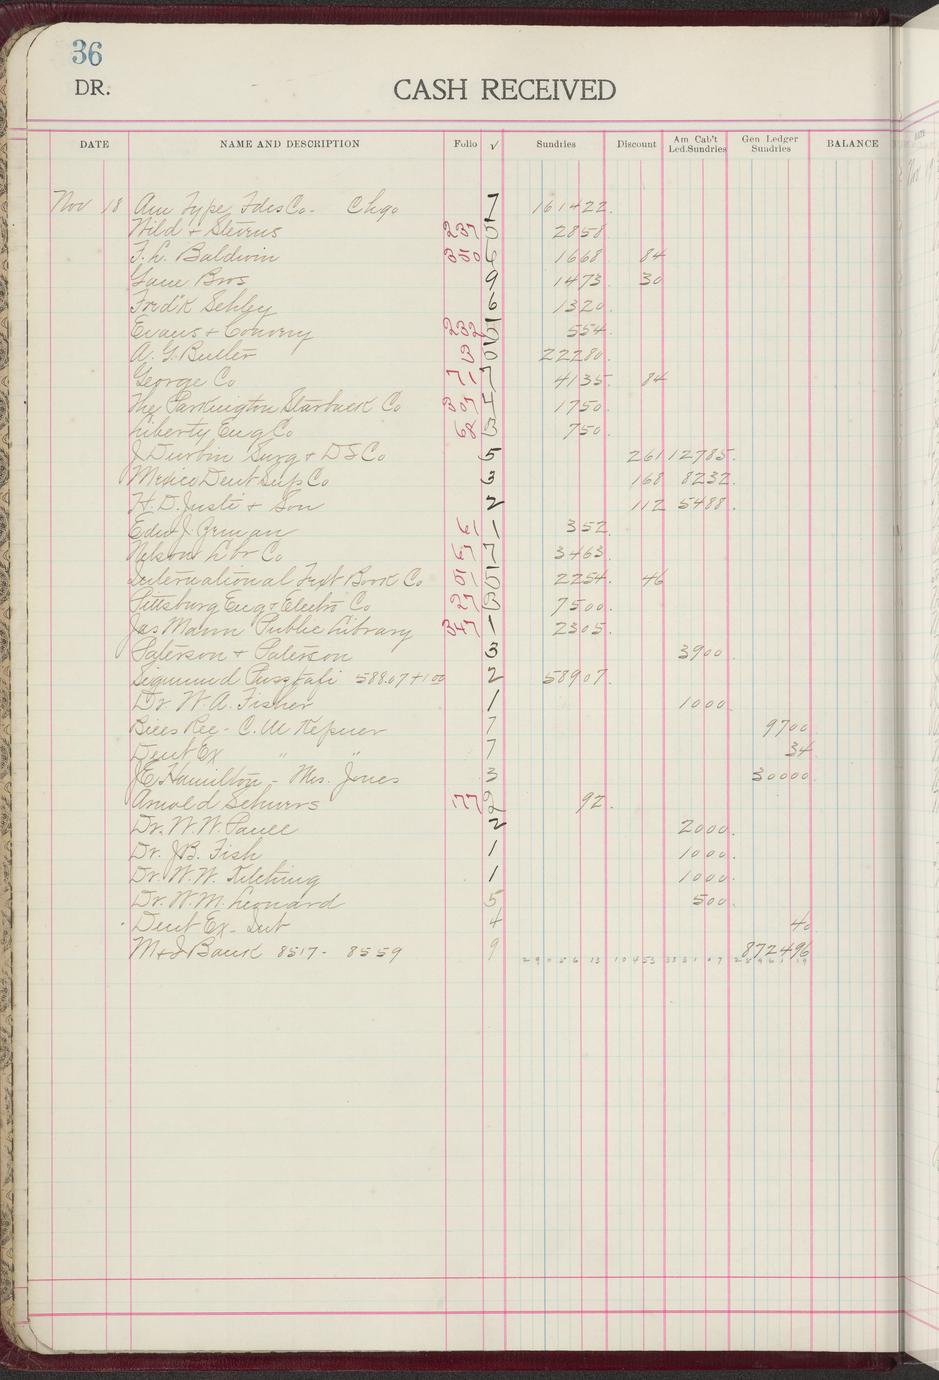 36
DR. CASH RECEIVED
DATE NAME AND DESCRIPTION Folio √ Sundries Discount Am Cab't Led.Sundries Gen Ledger Sundries BALANCE
Nov 18 Am Type Fdes Co - Chgo 7 1614 22
Wild + Stevens 237 5 28 58
F. L. Baldwin 350 6 16 68 84
Gane Bros 9 14 73 30
Fred'k Sehley 6 13 20
Evans + Conveny 232 5 54
A. G. Butler 13 0 222 80
George Co 71 7 41 35 84
The Parkington Starbuck Co 307 4 17 50
Liberty Eng Co 68 3 7 50
J Durbin Surg + D S Co 5 2 61 127 85
Mexico Dent Sup Co 3 1 68 82 32
H. D. Justi + Son 2 1 12 54 88
Edw J. Zeman 61 1 3 52
Nelson Lbr Co 67 7 34 63
International Text Book Co 51 5 22 54 46
Pittsburg Eng + Electro Co 27 3 75 00
Jas Mann Public Library 347 1 23 05
Paterson + Paterson 3 39 00
Sigmund 588.07 + 1 00 2 589 07
Dr W. A. Fisher 1 10 00
Bills Rec - C. M Kepner 7 97 00
Dent Ex " " 7 34
J E Hamilton - Mrs. Jones 3 300 00
Arnold Schwers 177 2 92
Dr. W. W. 2 20 00
Dr. J. B. Fish 1 10 00
Dr. W. W. 1 10 00
Dr. W. M. Leonard 5 5 00
Dent Ex - Int 4 40
M + J Bank 8517 - 8559 9 8724 96